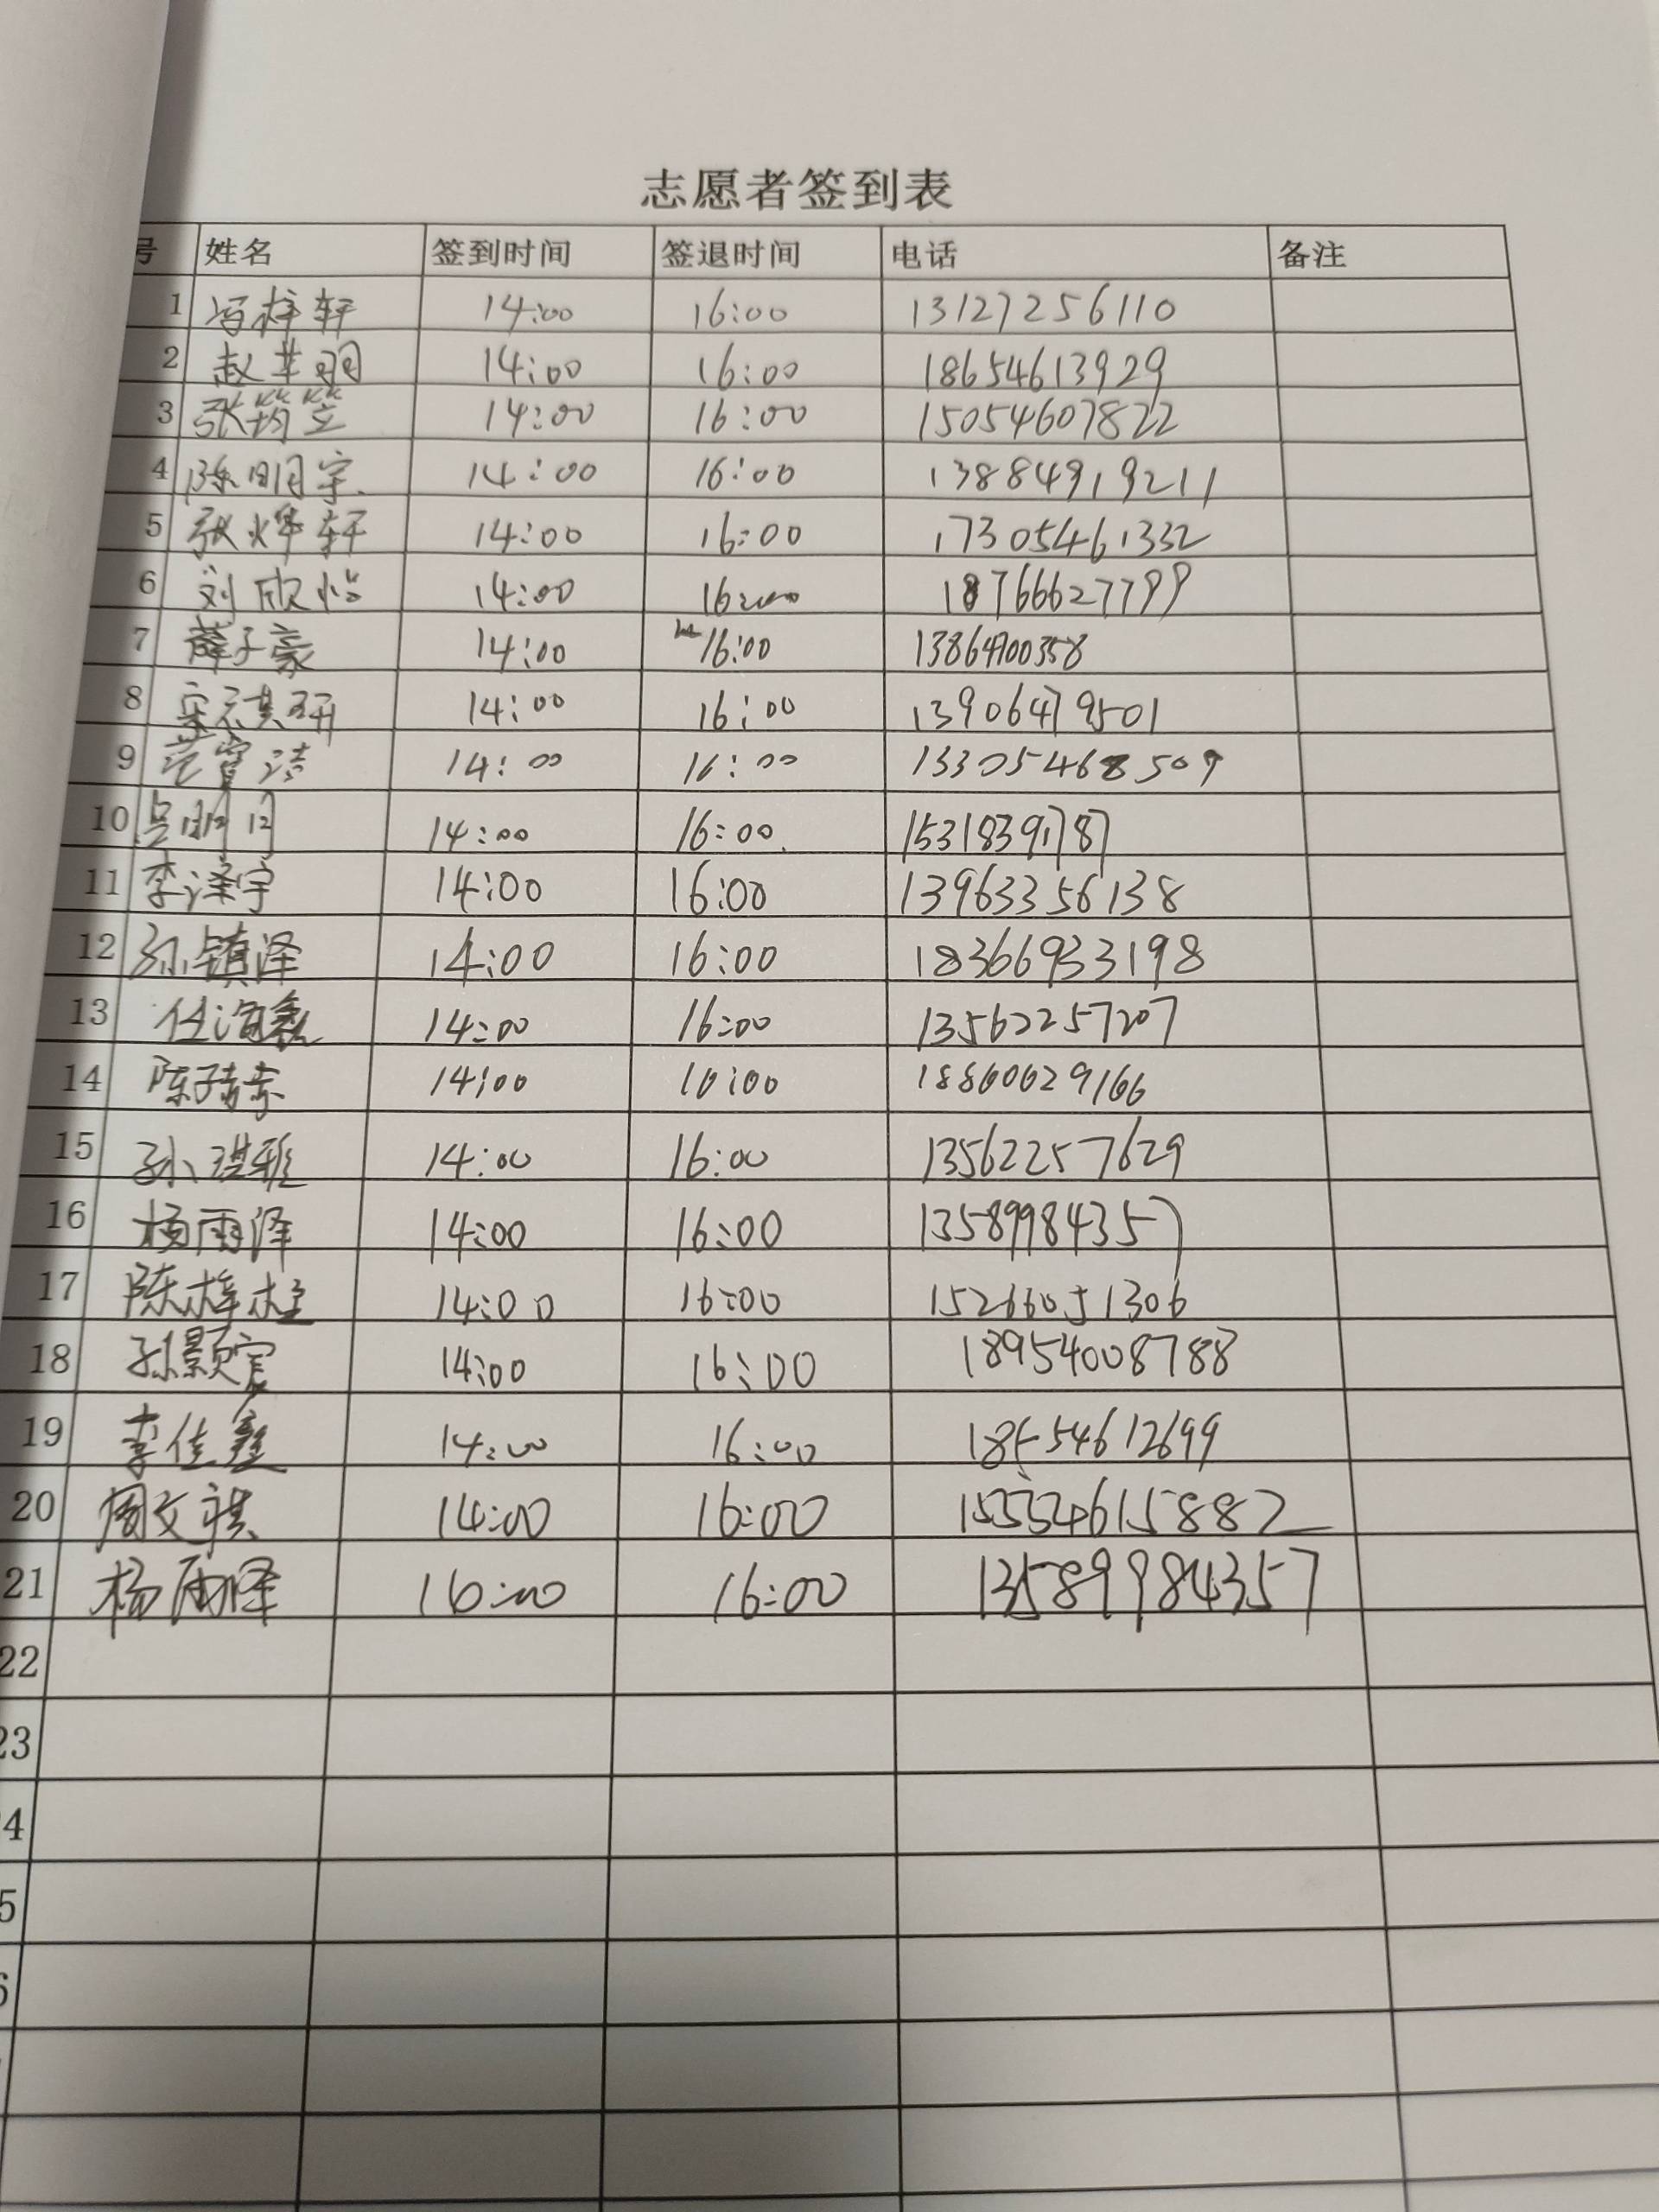 志愿者签到表
号 姓名 签到时间 签退时间 电话 备注
1 冯梓轩 14:00 16:00 13127256110
2 赵芷玥 14:00 16:00 18654613929
3 张筠笠 14:00 16:00 15054607822
4 陈明宇 14:00 16:00 13884919211
5 张烨轩 14:00 16:00 17305461332
6 刘欣怡 14:00 16:00 18766627799
7 薛子豪 14:00 16:00 13864700358
8 宋淇研 14:00 16:00 13906479501
9 14:00 16:00 13305468509
10 吴明月 14:00 16:00 15318391787
11 李泽宇 14:00 16:00 13963356138
12 孙镇泽 14:00 16:00 18366933198
13 14:00 16:00 13562257207
14 14:00 16:00 18860629166
15 孙琪雅 14:00 16:00 13562257629
16 杨雨泽 14:00 16:00 13589984357
17 陈梓桂 14:00 16:00 15266051306
18 孙颢宸 14:00 16:00 18954008788
19 李佳鑫 14:00 16:00 18654612699
20 周文祺 14:00 16:00 15554615882
21 杨雨泽 16:00 16:00 13589984357
22
23
4
5
6